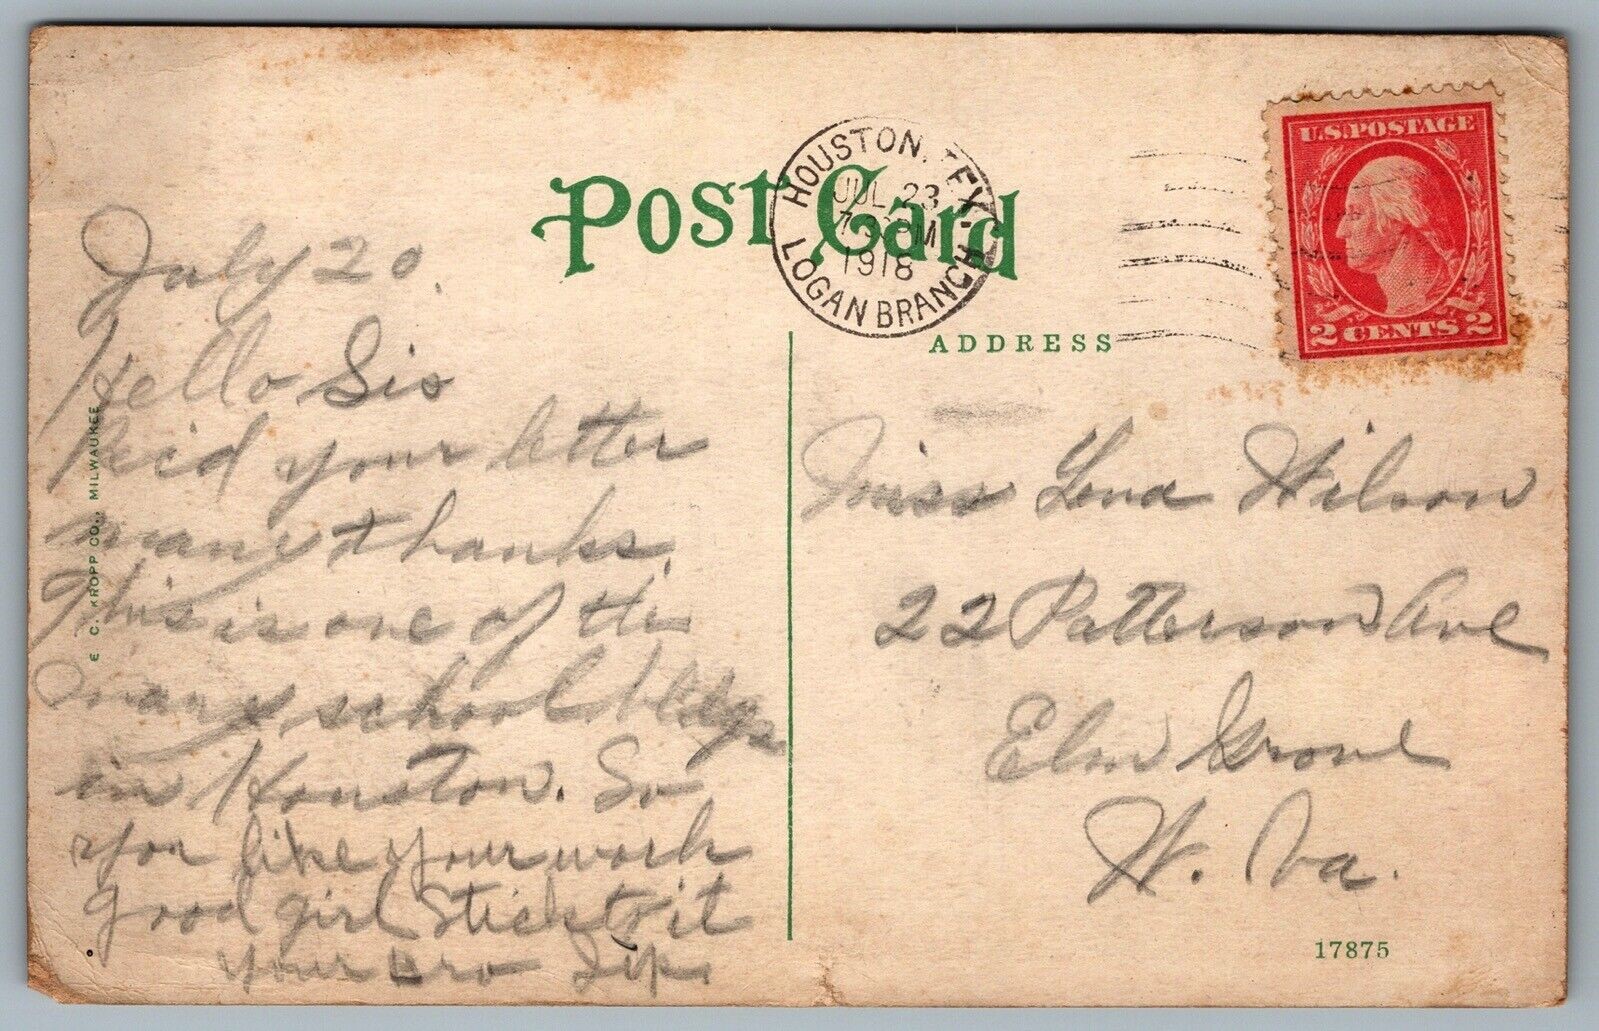 Post Card
HOUSTON, TEX.
JUL 23
7 PM
1918
LOGAN BRANCH
U.S. POSTAGE
2 CENTS 2
ADDRESS
July 20.
Hello Sis
Rec'd your letter
many thanks.
This is one of the
many school bldgs
in Houston. So
you like your work
good girl Stick to it
your bro
Miss Lena Wilson
22 Patterson Ave
Elm Grove
W. Va.
E. C. KROPP CO., MILWAUKEE
17875